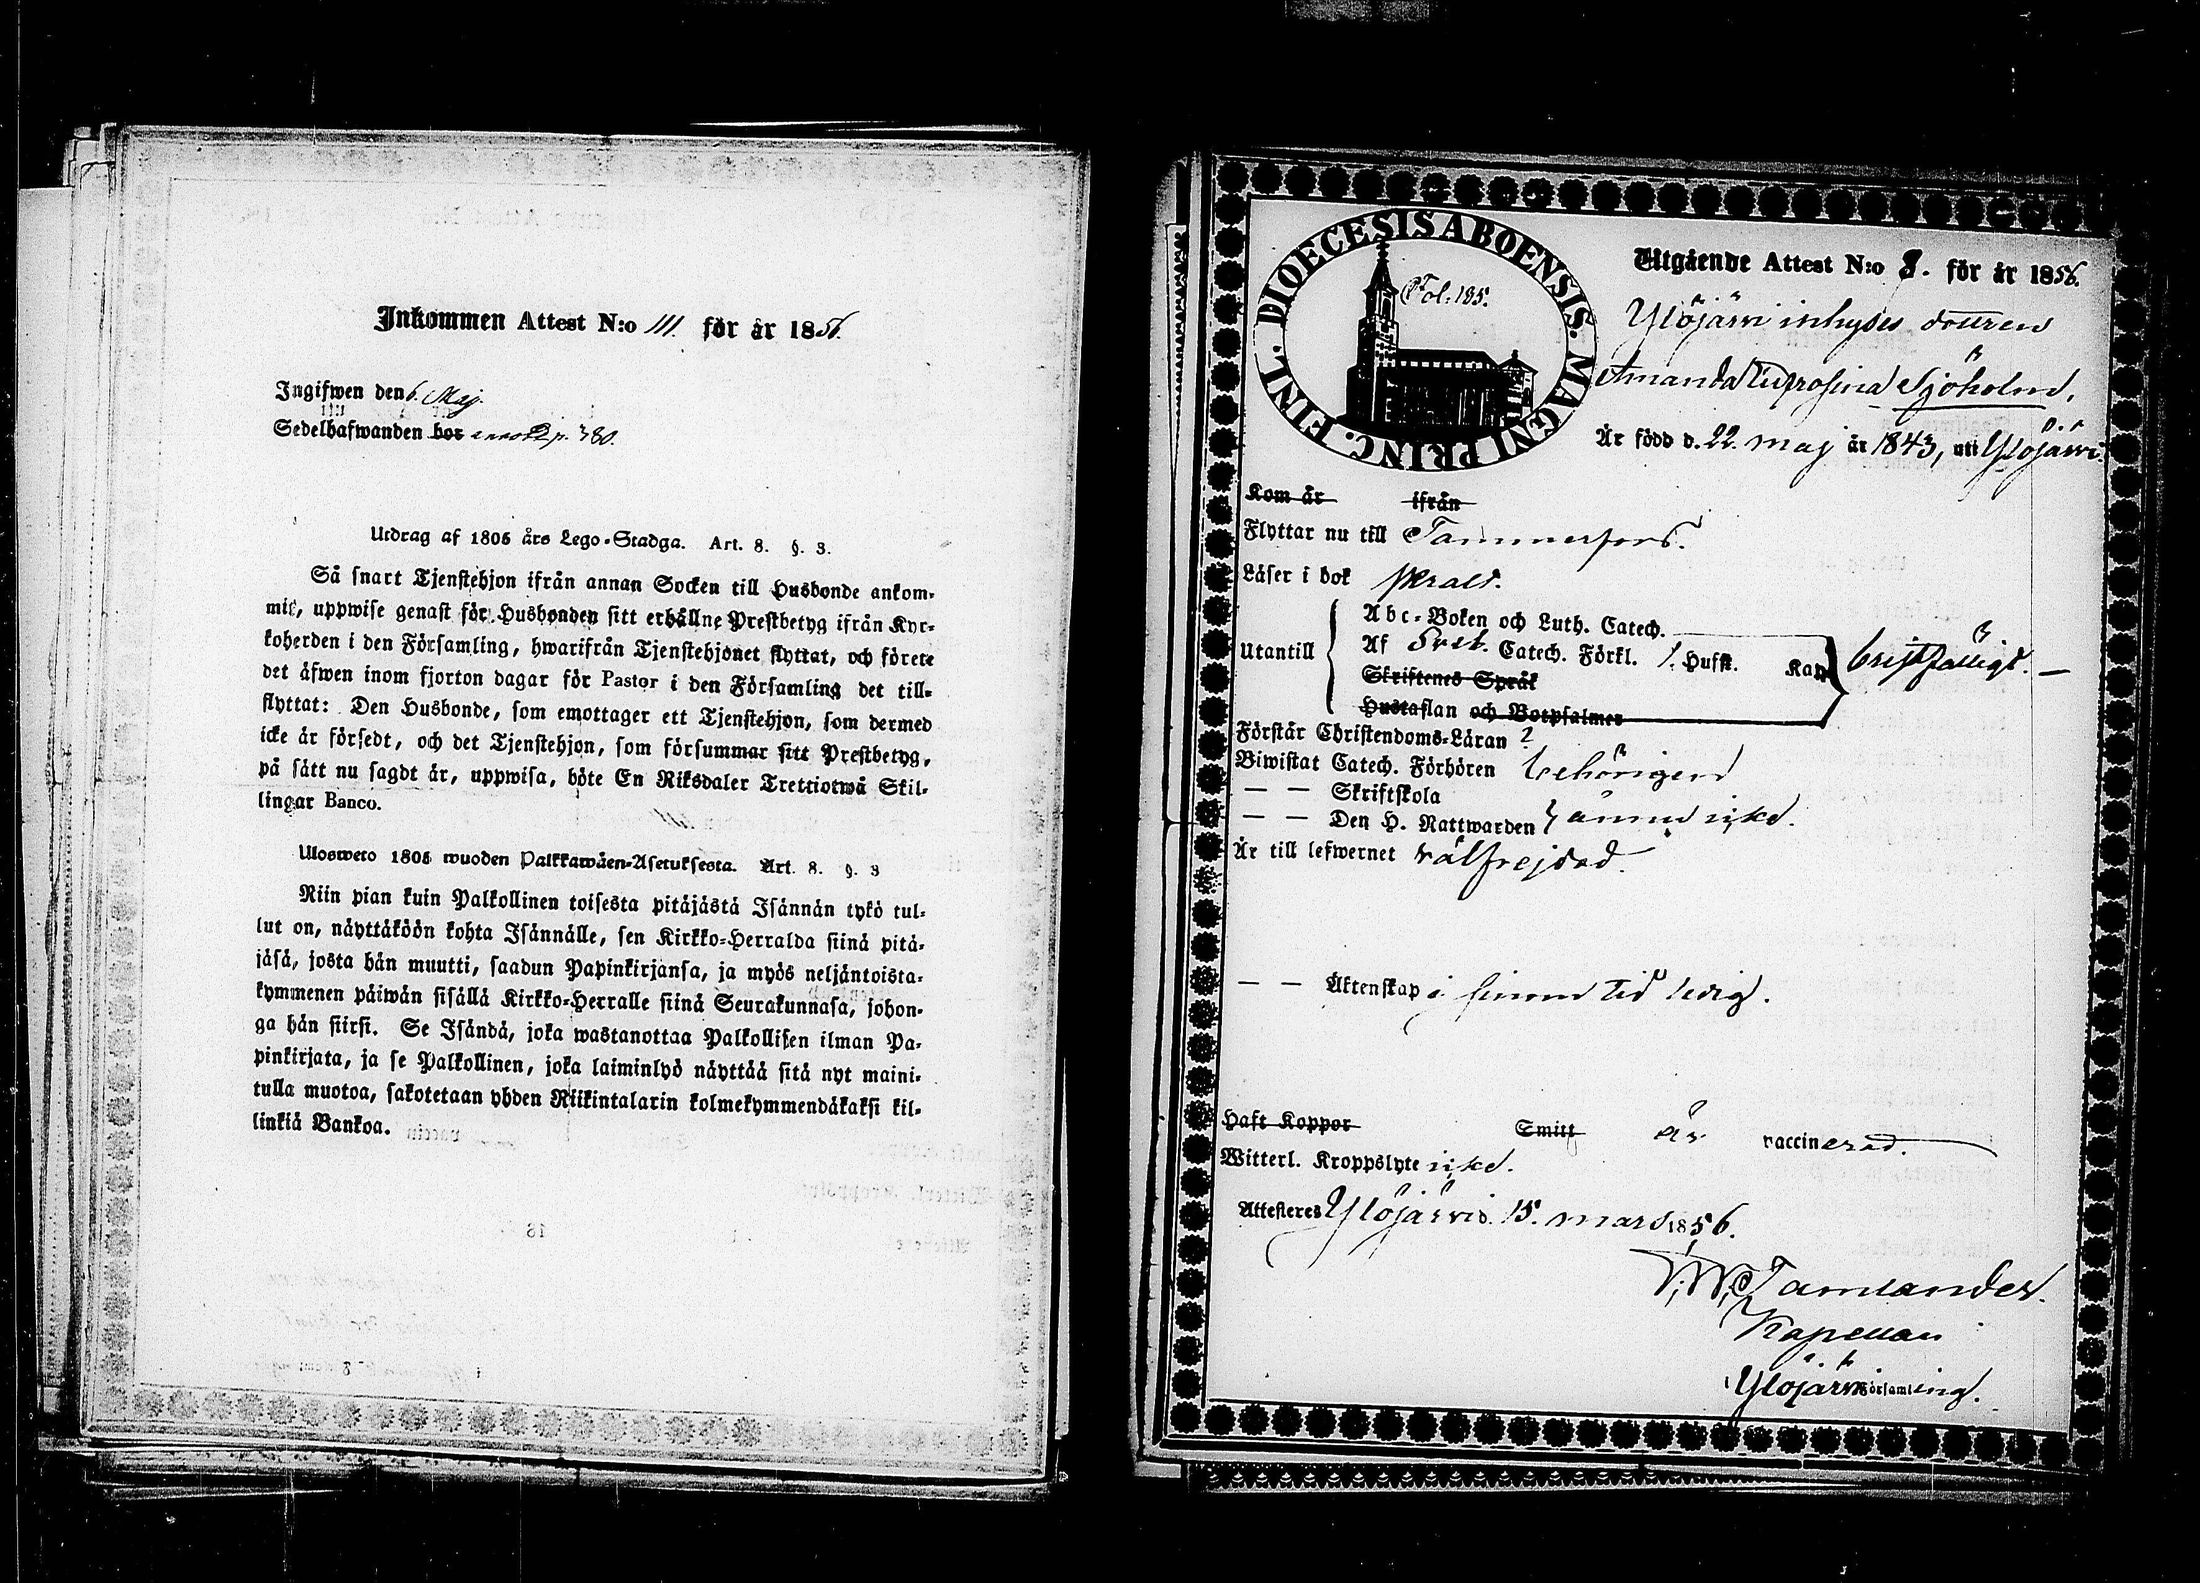 Inkommen Attest N:o 111. för år 1856.
Ingifwen den 6. Maj.
Sedelhafwanden bor p. 380.
Utdrag af 1805 års Lego-Stadga. Art. 8. §. 3.
Så snart Tjenstehjon ifrån annan Socken till Husbonde ankom-
mit, uppwise genast för Husbonden sitt erhållne Prestbetyg ifrån Kyr-
koherden i den Församling, hwarifrån Tjenstehjonet flyttat, och förete
det äfwen inom fjorton dagar för Pastor i den Församling det till-
flyttat: Den Husbonde, som emottager ett Tjenstehjon, som dermed
icke är försedt, och det Tjenstehjon, som försummar sitt Prestbetyg,
på sätt nu sagdt är, uppwisa, böte En Riksdaler Trettiotwå Skil-
lingar Banco.
Ulosweto 1805 wuoden Palkkawäen-Asetuksesta. Art. 8. §. 3
Niin pian kuin Palkollinen toisesta pitäjästä Isännän tykö tul-
lut on, näyttäköön kohta Isännälle, sen Kirkko-Herralda siinä pitä-
jäsä, josta hän muutti, saadun Papinkirjansa, ja myös neljäntoista-
kymmenen päiwän sisällä Kirkko-Herralle siinä Seurakunnasa, johon-
ga hän siirsi. Se Isändä, joka wastanottaa Palkollisen ilman Pa-
pinkirjata, ja se Palkollinen, joka laiminlyö näyttää sitä nyt maini-
tulla muotoa, sakotetaan yhden Riikintalarin kolmekymmendäkaksi kil-
linkiä Bankoa.
DIOECESIS ABOENSIS. MAGNI PRINC. FINL.
Fol: 185.
Utgående Attest N:o 8. för år 1856.
Ylöjärvi inhyses dottren
Amanda Eufrosina Sjöholm,
Är född d. 22. maj år 1843, uti Ylöjärvi.
Kom år ifrån
Flyttar nu till Tammerfors.
Läser i bok svalt.
Utantill
Abc-Boken och Luth. Catech.
Af Sveb. Catech. Förkl. 1. Hufst. Kap
Skriftenes Språk
Hustaflan och Botpsalmer
bristfälligt. —
Förstår Christendoms-Läran ?
Biwistat Catech. Förhören behörigen
— — Skriftskola
— — Den H. Nattwarden } ännu icke.
Är till lefwernet välfrejdad.
— — Äktenskap i sinom tid ledig.
Haft Koppor Smitt är vaccinerad.
Witterl. Kroppslyte icke.
Attesteres Ylöjärvi d. 15. mars 1856.
Tamlander.
Kapellan
Ylöjärvi Församling.